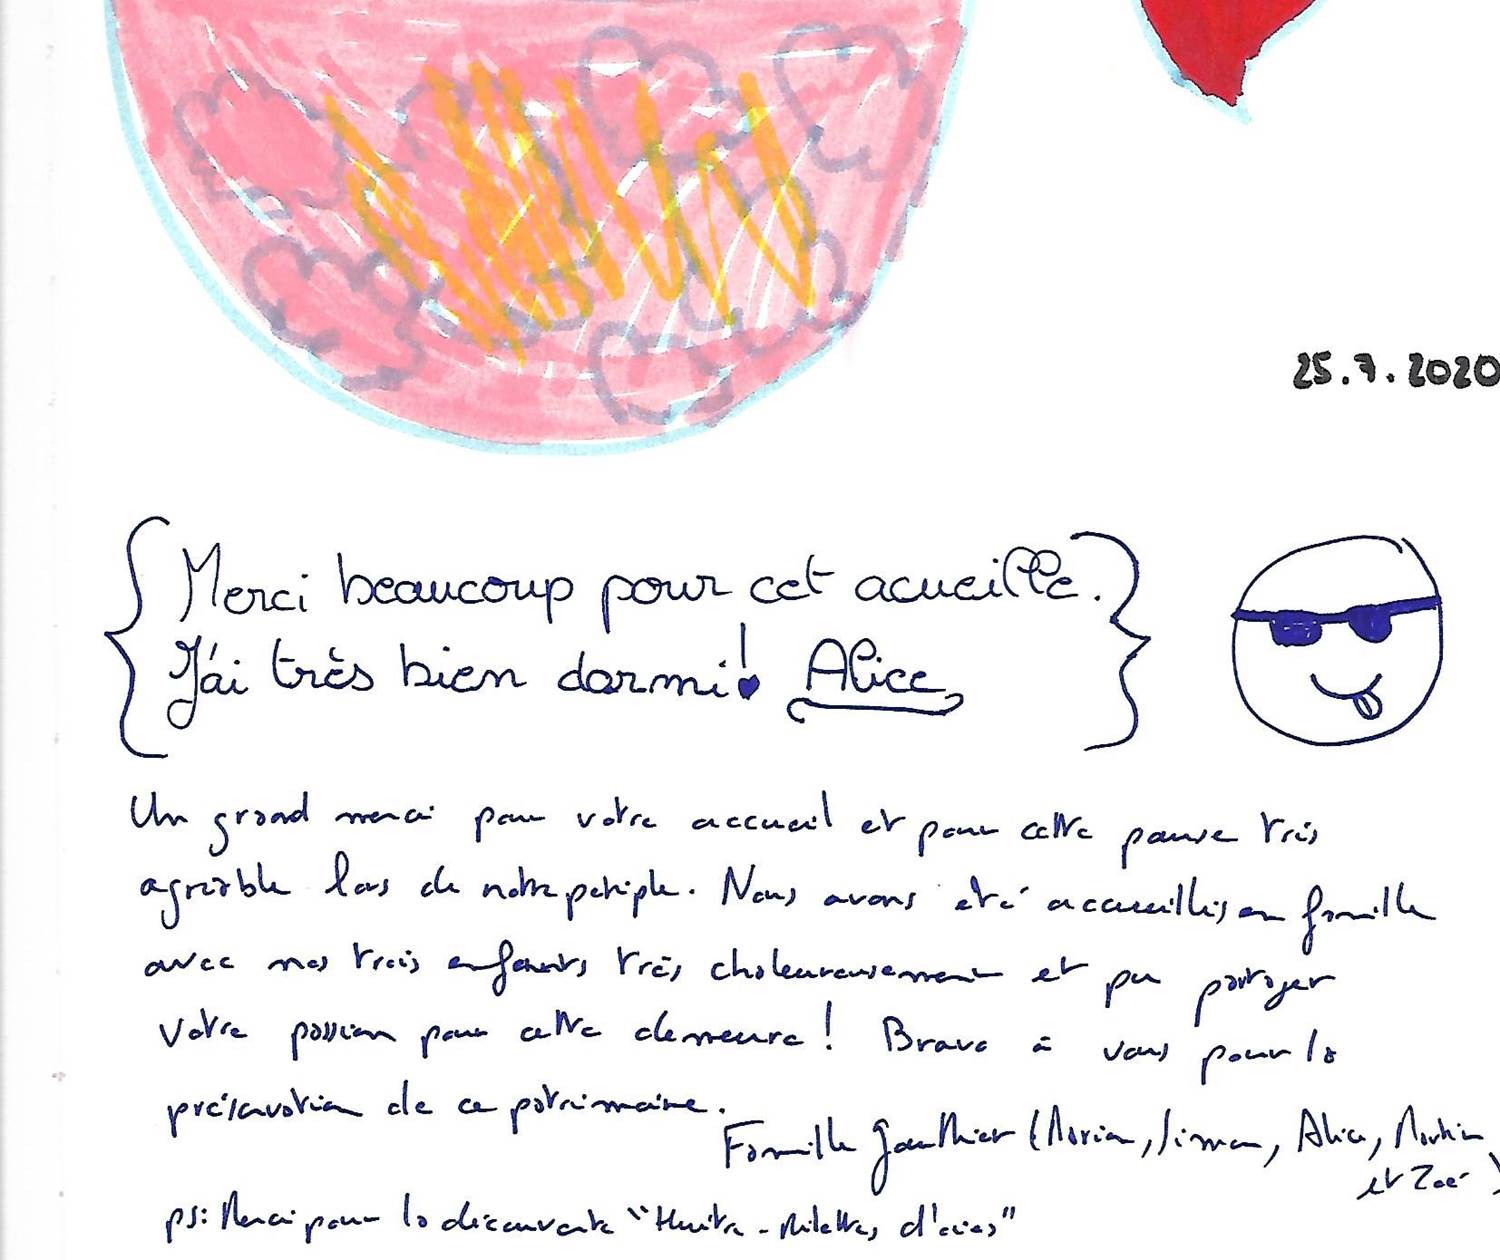 25.7.2020
Merci beaucoup pour cet acueille.
J'ai très bien dormi! Alice
Un grand merci pour votre accueil et pour cette pause très
agréable lors de notre periple. Nous avons été accueillis en famille
avec nos trois enfants très chaleureusement et pu partager
votre passion pour cette demeure! Bravo à vous pour la
préservation de ce patrimoine.
Famille Gauthier (Marian, Simon, Alice, Martin
et Zoé)
ps: Merci pour la découverte "Huitre - d'oies"